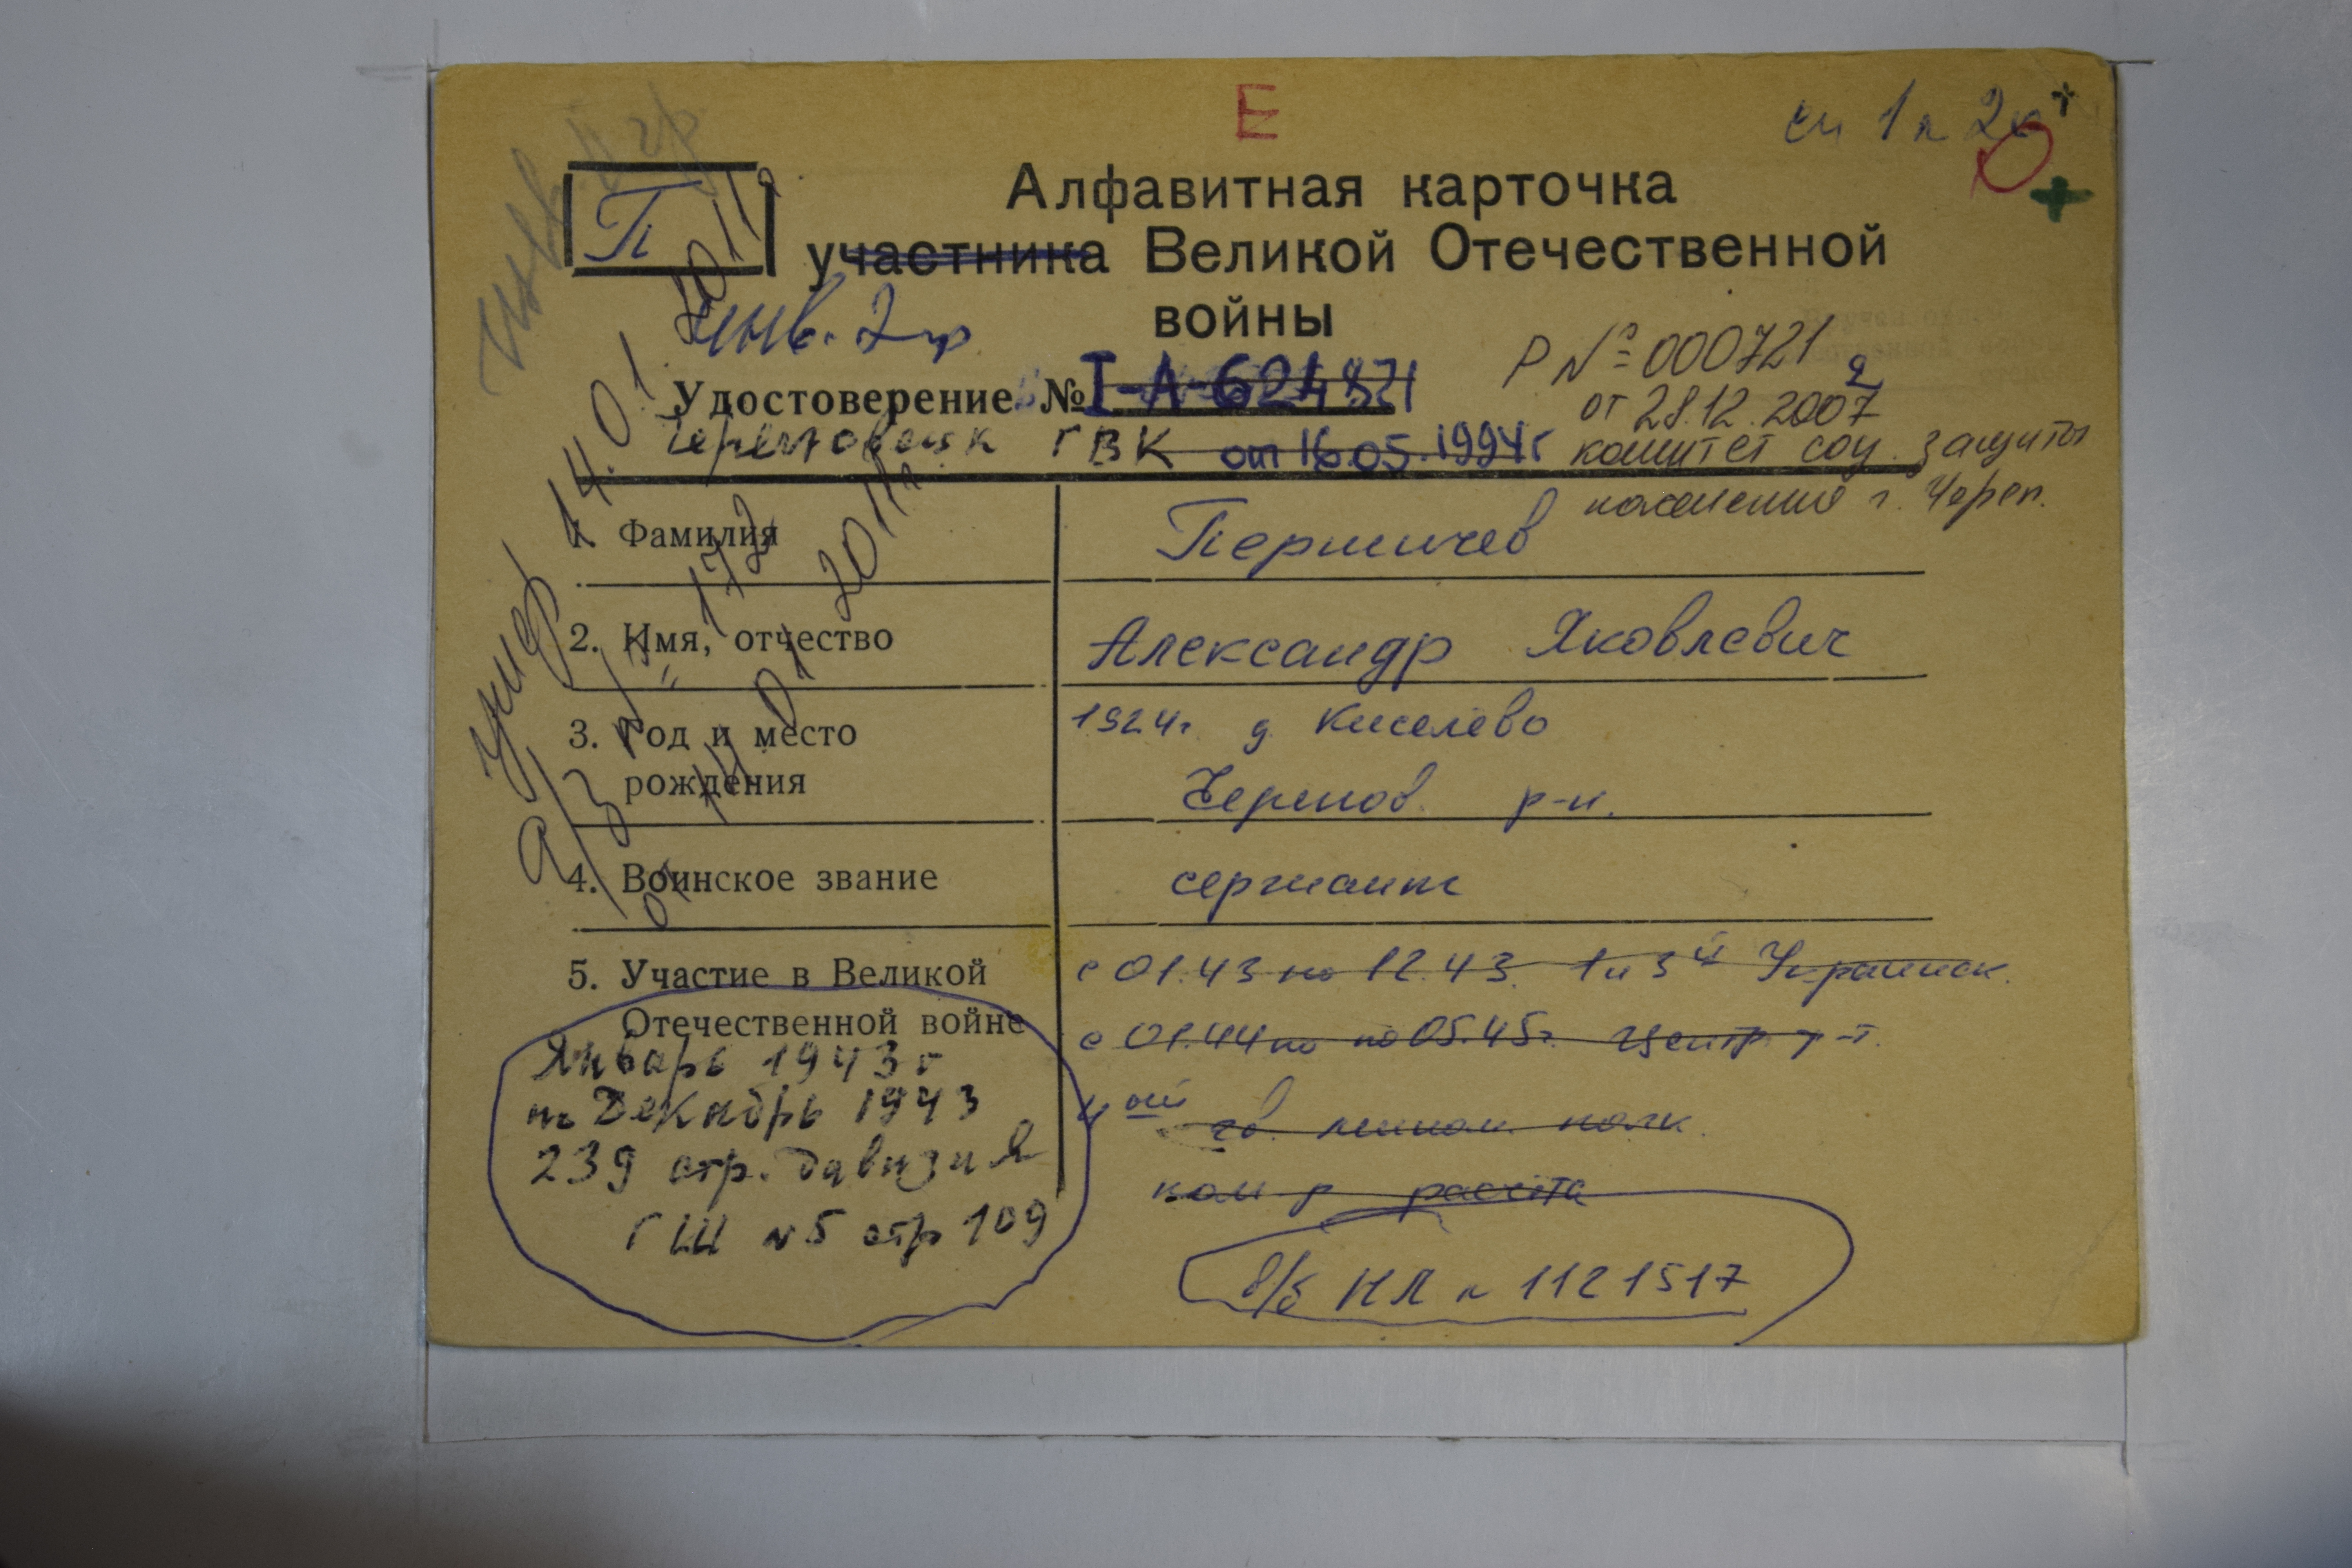 Е
Алфавитная карточка
П
участника Великой Отечественной
войны
инв. 2 гр
Удостоверение № I-А-624871
Череповецк ГВК от 16.05.1994г
Р № 000721
от 28.12.2007
комитет соц. защиты
населения г. Череп.
1. Фамилия Першичев
2. Имя, отчество Александр Яковлевич
3. Год и место 1924г. д. Киселево
рождения Черепов. р-н.
4. Воинское звание сержант
5. Участие в Великой с 01.43 по 12.43. 1 и 3й Украинск.
Отечественной войне с 01.44 по 05.45г. Центр. ф-т.
Январь 1943г
по Декабрь 1943
239 стр. дивизия
ГШ №5 стр 109
4ой гв. полк.
ком-р расчета
в/б НЛ № 1121517
инв. II гр
умер 14.01 2011г
а/з № 172
от 14.01 2011г